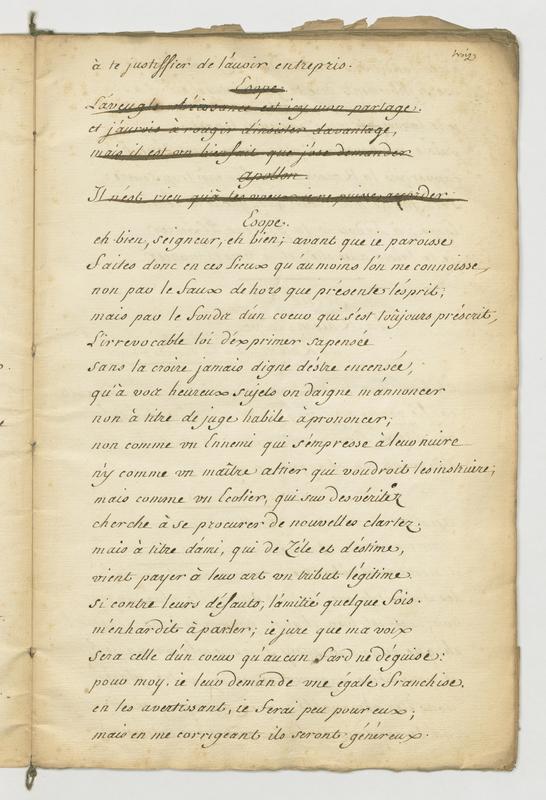 à te justiffier de l'avoir entrepris.
Esope.
L'aveugle est icy mon partage.
et j'aurois à rougir d'insister davantage,
mais il est un bienfait que j'ose demander
apollon.
Il n'est rien qu'à tes vœux ie ne puisse accorder
Esope.
eh bien, seigneur, eh bien; avant que ie paroisse
faites donc en ces Lieux qu'au moins l'on me connoisse,
non par le faux dehors que présente l'ésprit;
mais par le fonds d'un coeur qui s'est toûjours préscrit,
L'irrevocable loi d'exprimer sa pensée
sans la croire jamais digne d'éstre encensée,
qu'à vos heureux sujets on daigne m'annoncer
non à titre de juge habile à prononcer;
non comme un Ennemi qui s'empresse à leur nuire
n'y comme un maître altier qui voudroit les instruire;
mais comme un Ecolier, qui sur des véritez
cherche à se procurer de nouvelles clartez.
mais à titre d'ami, qui de Zéle et d'éstime,
vient payer à leur art un tribut légitime.
si contre leurs défauts, l'amitié quelque fois.
m'enhardit à parler; ie jure que ma voix
sera celle d'un coeur qu'aucun fard ne déguise:
pour moy, ie leur demande une égale franchise.
en les avertissant, ie ferai peu pour eux;
mais en me corrigeant ils seront généreux.